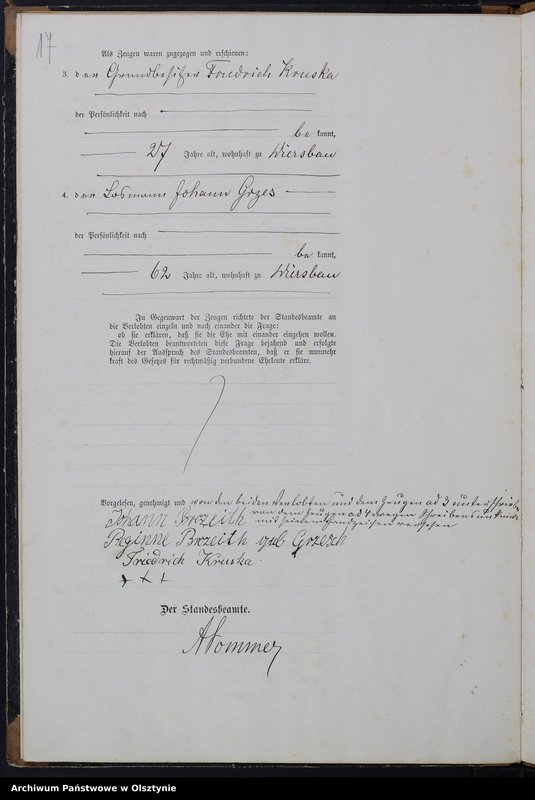 17
Als Zeugen waren zugezogen und erschienen:
3. der Grundbesitzer Friedrich Kruska
der Persönlichkeit nach
be kannt,
27 Jahre alt, wohnhaft zu Wiersbau
4. der Losmann Johann Grzes
der Persönlichkeit nach
be kannt,
62 Jahre alt, wohnhaft zu Wiersbau
In Gegenwart der Zeugen richtete der Standesbeamte an
die Verlobten einzeln und nach einander die Frage:
ob sie erklären, daß sie die Ehe mit einander eingehen wollen.
Die Verlobten beantworteten diese Frage bejahend und erfolgte
hierauf der Ausspruch des Standesbeamten, daß er sie nunmehr
kraft des Gesetzes für rechtmäßig verbundene Eheleute erkläre.
Vorgelesen, genehmigt und von den beiden Verlobten und dem Zeugen ad 3 unterschrieben
von dem Zeugen ad 4 wegen Schreibensunkunde
mit seinem Handzeichen versehen
Johann Brezeith
Reginne Brezeith geb Grzesch
Friedrich Kruska.
+ + +
Der Standesbeamte.
ASommer
Archiwum Państwowe w Olsztynie